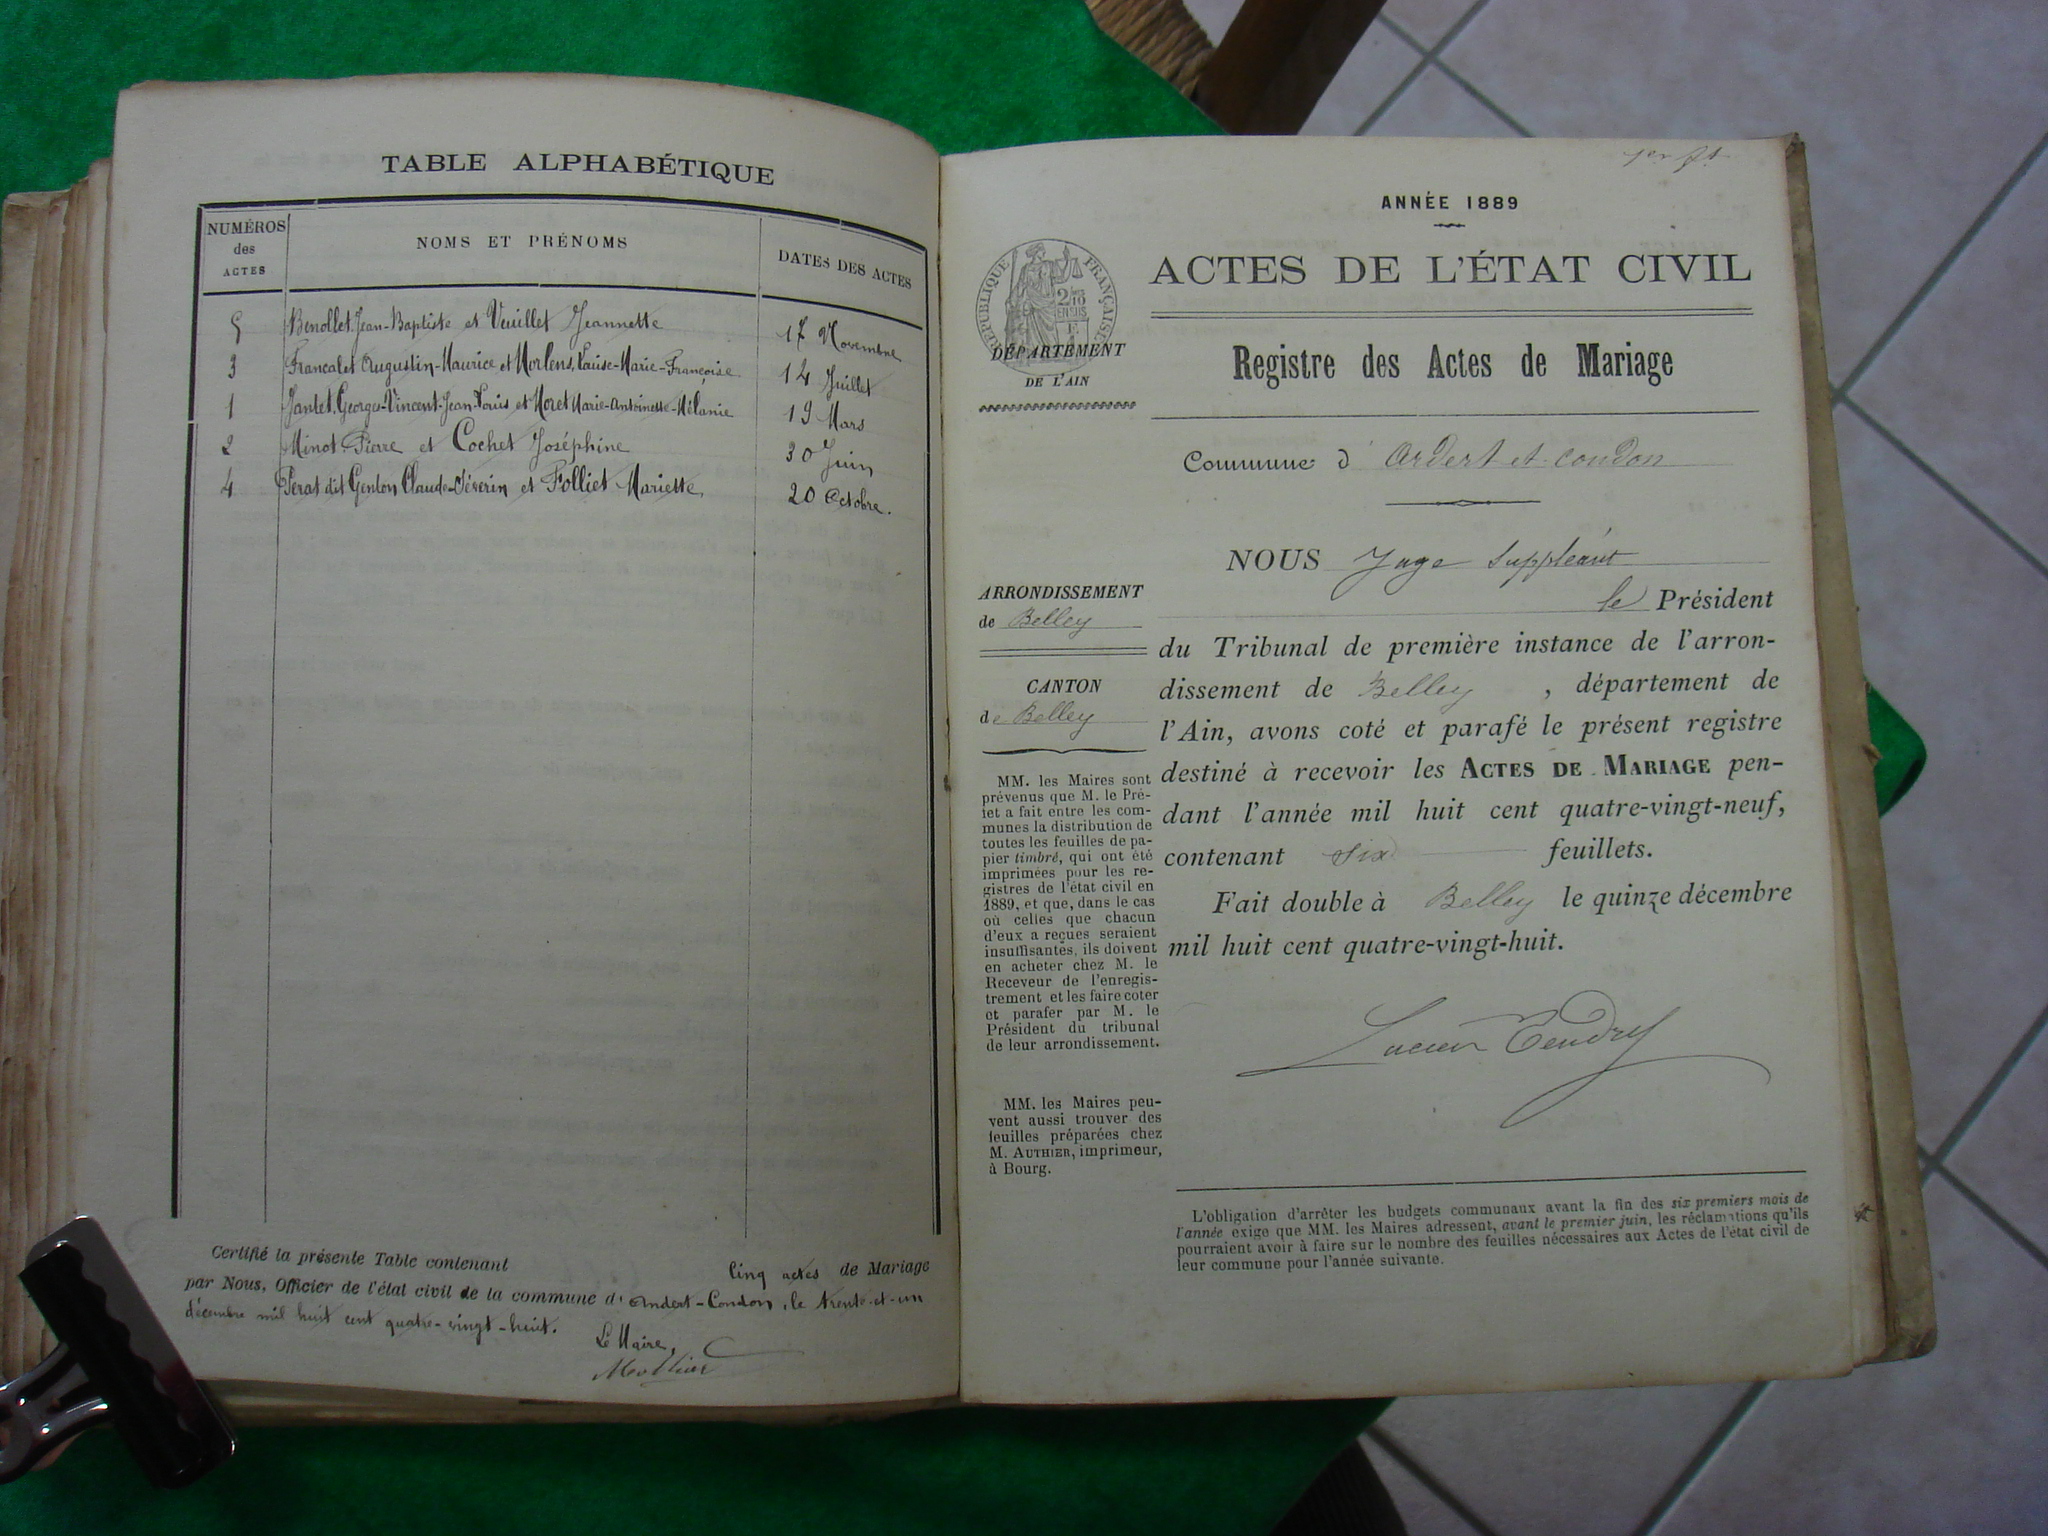 TABLE ALPHABÉTIQUE
NUMÉROS
des
ACTES
NOMS ET PRÉNOMS
DATES DES ACTES
5 Benollet Jean-Baptiste et Veuillet Jeannette 17 Novembre
3 Francalet Augustin-Maurice et Morlens, Louise-Marie-Françoise 14 Juillet
1 Jantet, Georges-Vincent-Jean-Louis et Moret Marie-Antoinette-Mélanie 19 Mars
2 Minot Pierre et Cochet Joséphine 30 Juin
4 Perat dit Genton Claude-Séverin et Folliet Mariette 20 Octobre.
Certifié la présente Table contenant Cinq actes de Mariage
par Nous, Officier de l'état civil de la commune d'Andert-Condon, le trente-et-un
décembre mil huit cent quatre-vingt-huit.
Le Maire,
ANNÉE 1889
ACTES DE L'ÉTAT CIVIL
RÉPUBLIQUE FRANÇAISE
2 Fes
10
EN SUS
DÉPARTEMENT
DE L'AIN
Registre des Actes de Mariage
Commune d' Ardert et Condon
NOUS Juge Suppléant
le Président
ARRONDISSEMENT
de Belley
CANTON
de Belley
du Tribunal de première instance de l'arron-
dissement de Belley, département de
l'Ain, avons coté et parafé le présent registre
destiné à recevoir les ACTES DE MARIAGE pen-
dant l'année mil huit cent quatre-vingt-neuf,
contenant six feuillets.
Fait double à Belley le quinze décembre
mil huit cent quatre-vingt-huit.
Lucien Tendry
MM. les Maires sont
prévenus que M. le Pré-
fet a fait entre les com-
munes la distribution de
toutes les feuilles de pa-
pier timbré, qui ont été
imprimées pour les re-
gistres de l'état civil en
1889, et que, dans le cas
où celles que chacun
d'eux a reçues seraient
insuffisantes, ils doivent
en acheter chez M. le
Receveur de l'enregis-
trement et les faire coter
et parafer par M. le
Président du tribunal
de leur arrondissement.
MM. les Maires peu-
vent aussi trouver des
feuilles préparées chez
M. AUTHIER, imprimeur,
à Bourg.
L'obligation d'arrêter les budgets communaux avant la fin des six premiers mois de
l'année exige que MM. les Maires adressent, avant le premier juin, les réclamations qu'ils
pourraient avoir à faire sur le nombre des feuilles nécessaires aux Actes de l'état civil de
leur commune pour l'année suivante.